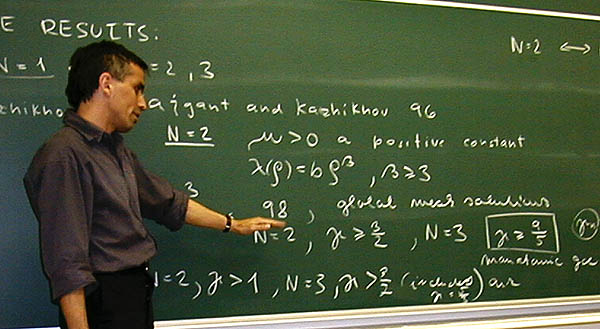 E RESULTS:
N=2 ↔
N=1 =2,3
azhikho ajgant and Kazhikhov 96
N=2 μ>0 a positive constant
λ(ρ)=bρ^β, β≥3
3
98, global weak solutions
N=2, γ≥3/2, N=3 γ≥9/5
monatomic gas
N=2, γ>1, N=3, γ>3/2 (includes air